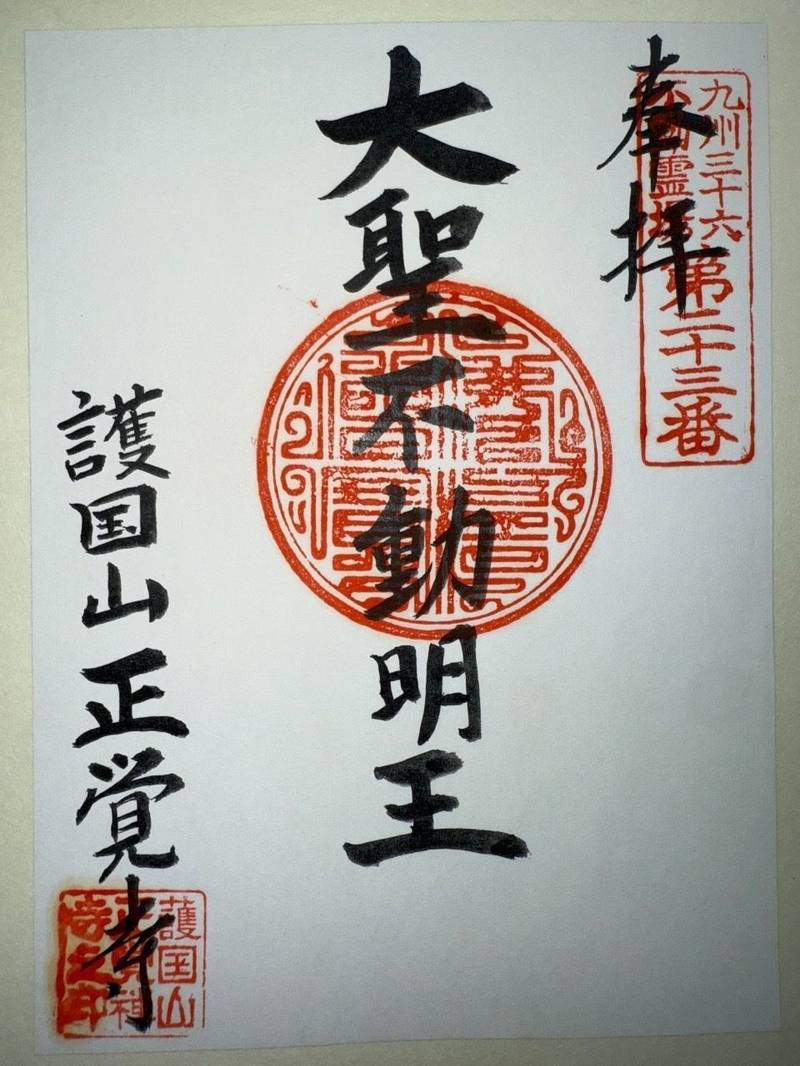 奉拝
九州三十六
不動霊場
第二十三番
大聖不動明王
護国山正覚寺
護国山